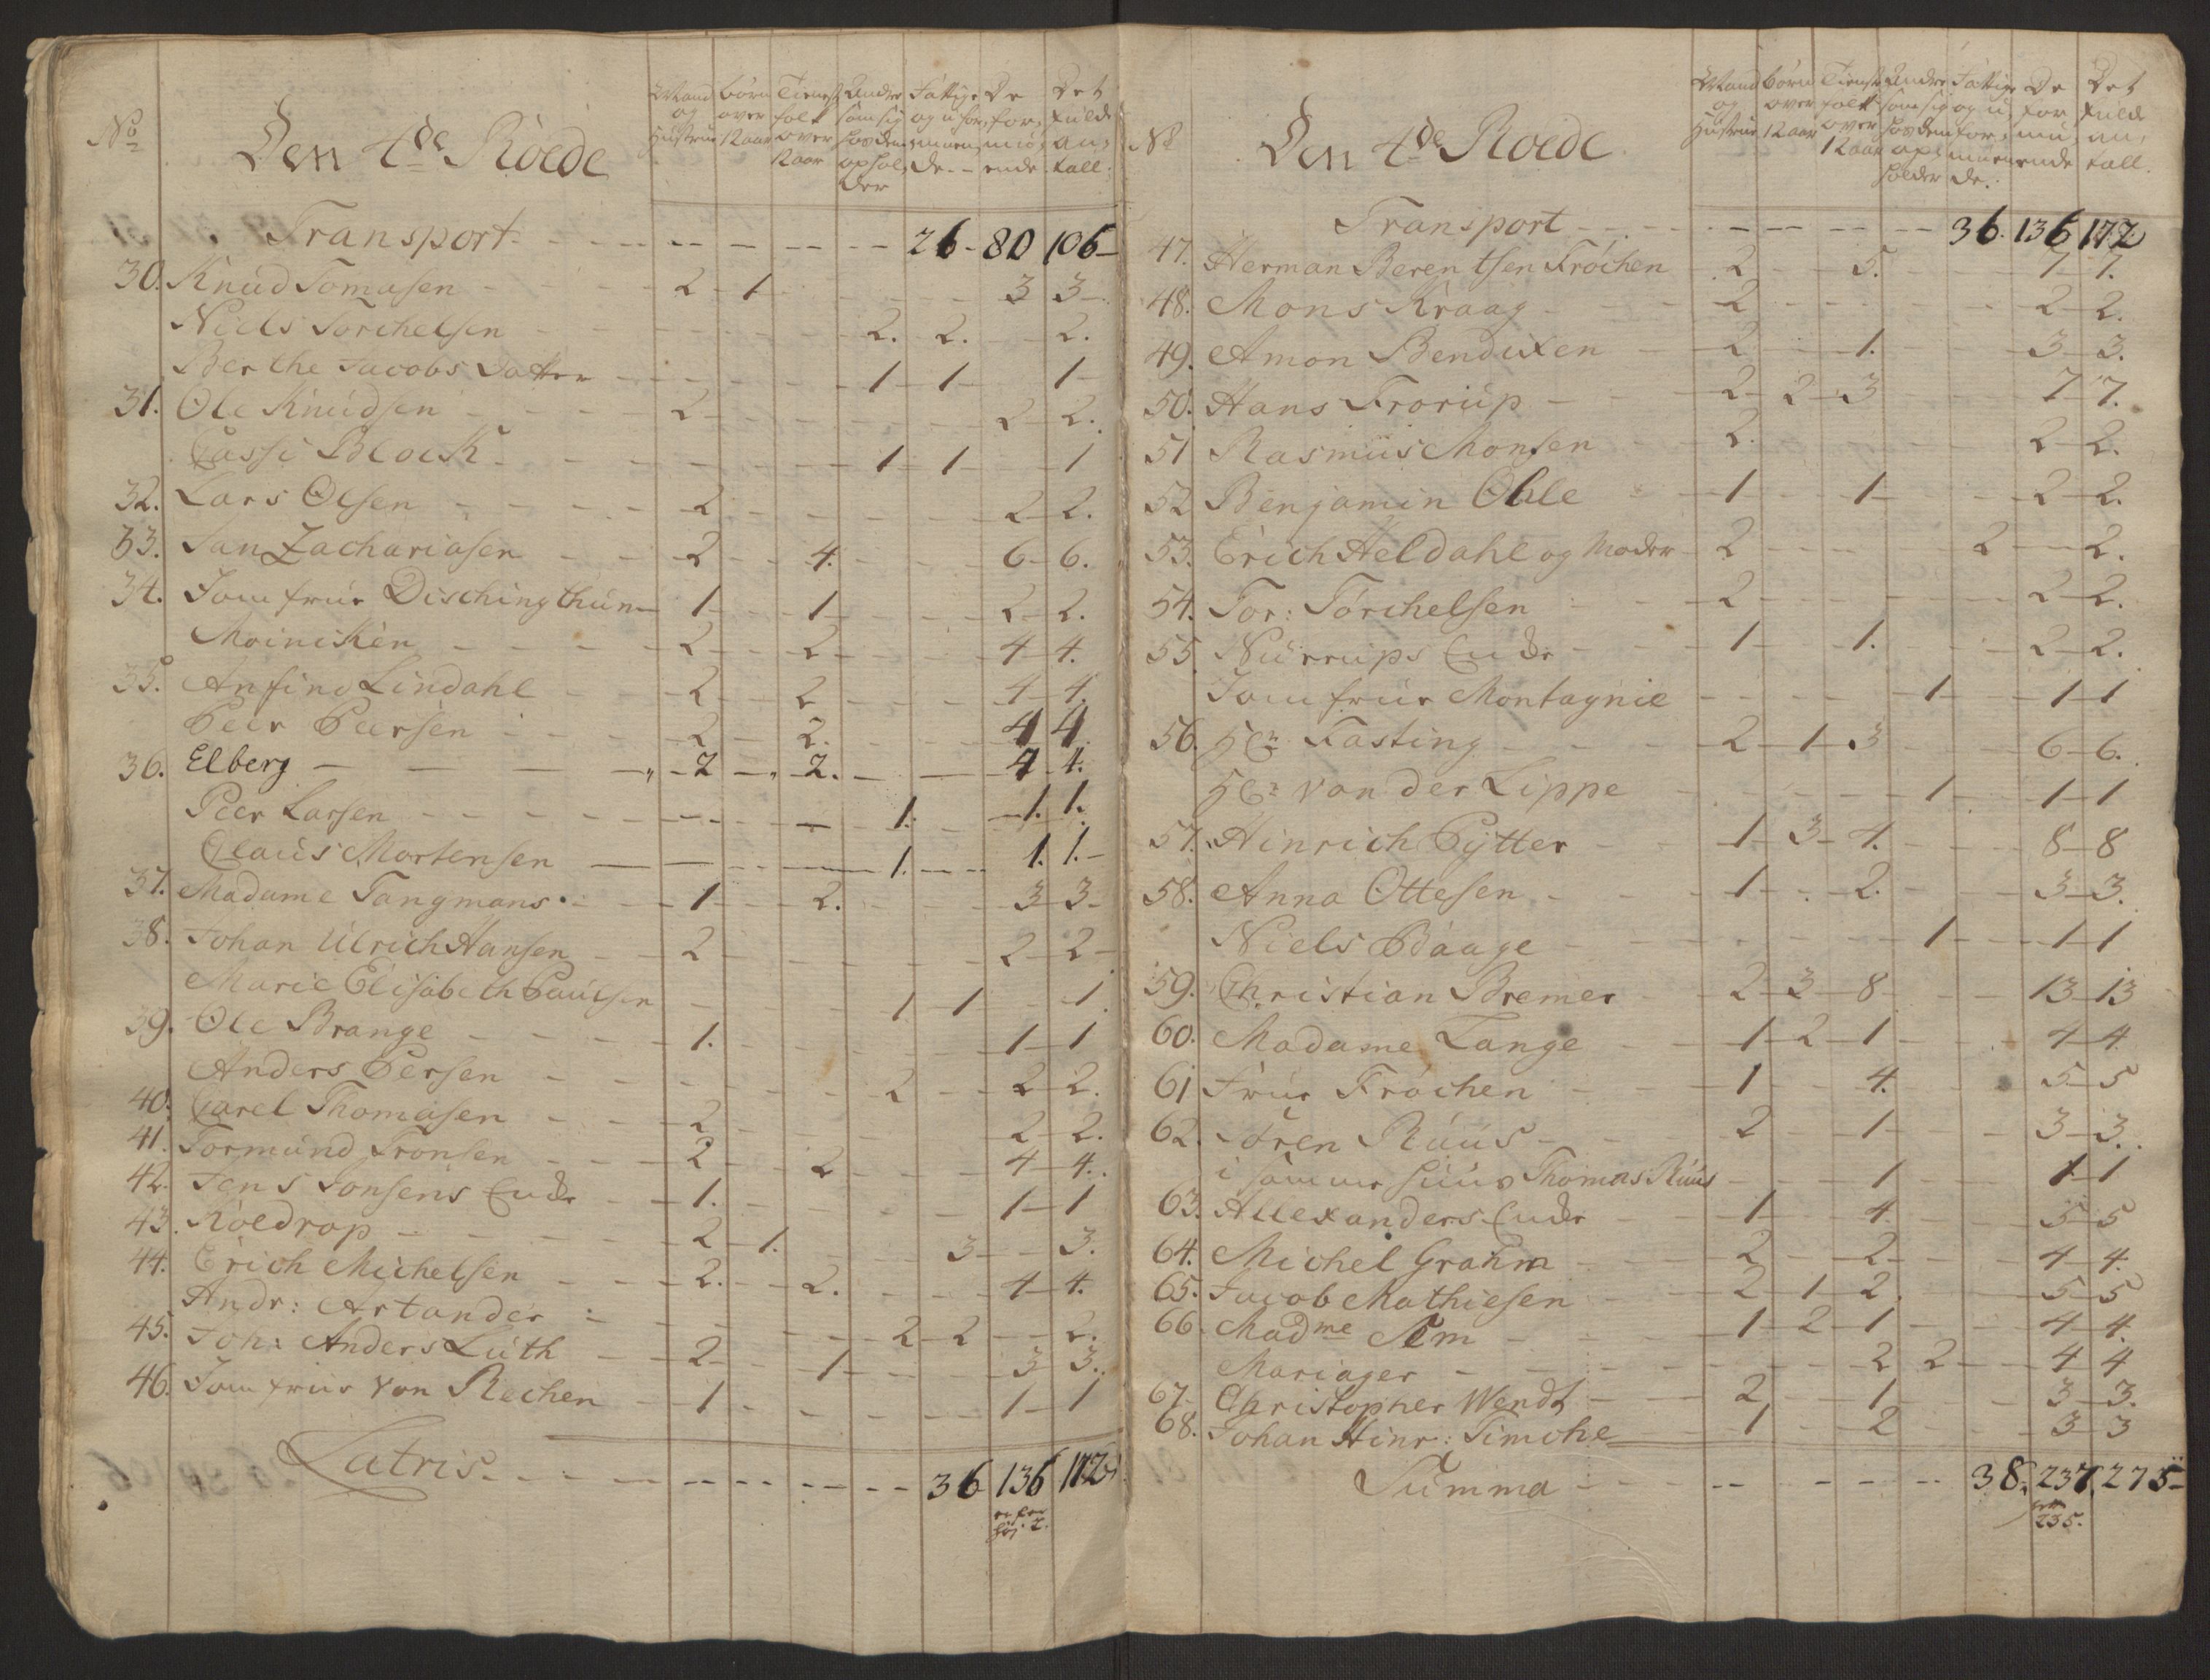 No Den 4de Roede
Mand og Hustrue | børn over 12 aar | Tieneste folk over 12 aar | Andre som sig hos dem ophol der | Fattige og ufor, muen, de | De for, mu, ende | Det fulde an, tall
Transport 26 80 106
30. Knud Tomasen 2 1 3 3
Niels Torchelsen 2. 2. 2.
Berthe Jacobs Datter 1 1 1
31. Ole Knudsen 2 2 2.
Cassi Block 1 1 1
32. Lars Olsen 2 2 2.
33. Jan Zachariasen 2 4. 6 6.
34. Jomfrue Dischingthun 1 1 2 2.
Moiniken 2 2 4 4.
35. Anfind Lindahl 2 2 4 4.
Peer Peersen 2 2. 4 4
36. Elberg 2 2. 4 4.
Peer Larsen 1. 1. 1.
Claus Mortensen 1. 1. 1.
37. Madame Tangmans 1 2. 3 3
38. Johan Ulrich Hansen 2 2 2
Marie Elisabeth Paulsen 1 1 1
39. Ole Brange 1. 1 1
Anders Persen 2 2 2.
40. Carel Thomasen 2 2 2.
41. Tormund Tronsen 2 2 4 4.
42. Jens Jonsens Enke 1. 1 1
43. Roldrop 2 1. 3 3.
44. Erich Michelsen 2. 2. 4 4.
Andr: Artander 2 2 2.
45. Joh: Anders Luth 2 1 3 3.
46. Jomfrue von Rechen 1 1 1
Latris 36 136 172
er for høj. 2.
No Den 4de Roede
Mand og Hustrue | børn over 12 aar | Tieneste folk over 12 aar | Andre som sig hos dem op, holder | Fattige og u, for, muen de. | De for mu, ende | Det fulde an, tall.
Transport 36. 136 172
47. Herman Berentsen Fröchen 2 5. 7 7.
48. Mons Kraag 2 2 2.
49. Amon Bendixen 2 1. 3 3.
50. Hans Frorup 2 2 3 7 7.
51 Rasmus Monsen 2. 2 2.
52 Benjamin Ohle 1 1 2 2.
53. Erich Heldahl og Moder 2 2 2.
54. Tor: Törchelsen 2 2 2.
55 Nürrups Enke 1 1. 2 2.
Jomfrue Montagnie 1 1 1
56. Hr Fasting 2 1 3 6 6.
Hr von der Lippe 1 1 1
57. Hinrich Pytter 1 3 4. 8 8
58. Anna Ottesen 1 2. 3 3.
Niels Baage 1 1 1
59. Christian Bremer 2 3 8 13 13
60. Madame Lange 1 2 1 4 4
61 Frue Fröchen 1 4. 5 5
62. Sören Ruus 2 1 3 3.
i samme Huus Thomas Ruus 1 1 1
63. Allexanders Enke 1 4 5 5
64. Michel Grahm 2 2 4 4.
65. Jacob Mathiesen 2 1 2. 5 5
66. Madme Tem 1 2 1 4 4.
Mariager 2 2 4 4
67. Christopher Wendt 2 1 3 3.
68. Johan Hinr: Timche 1 2 3 3
Summa 38. 237. 275
235.